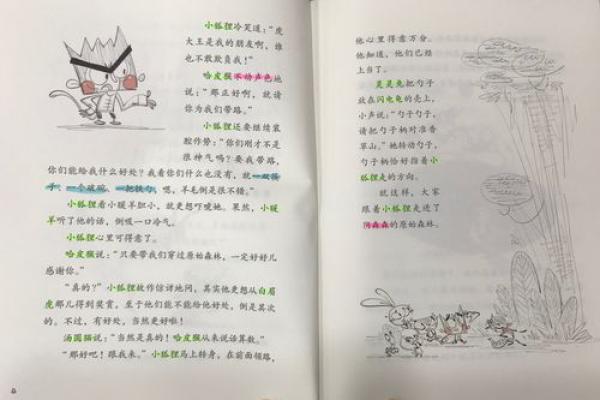 小狐狸冷笑道："虎
大王是我的朋友啊，谁
也不敢欺负我！"
哈皮猴不动声色地
说："那正好啊，就请
你为我们带路。"
小狐狸还要继续装
腔作势："你们刚才不是
很神气吗？要我带路，
你们能给我什么好处？我看你们什么也没有，就一双筷
子、一个破碗、一把铁勺，嗯，羊毛倒是很不错。"
小狐狸看小暖羊胆小，就更想吓唬她。果然，小暖
羊听了他的话，倒吸一口冷气。
小狐狸心里可得意了。
哈皮猴说："只要带我们穿过原始森林，一定好好儿
感谢你。"
"真的？"小狐狸故作惊讶地问，其实他更想从白眉
虎那儿得到奖赏，至于他们能不能给他好处，倒是其次
的。不过，有好处，当然更好啦！
汤圆猫说："当然是真的！哈皮猴从来说话算数。"
"那好吧！跟我来。"小狐狸马上转身，在前面领路，
他心里得意万分。
他知道，他们已经
上当了。
灵灵兔把勺子
放在闪电龟的壳上，
小声说："勺子勺子，
请把勺子柄对准香
草山。"她转动勺子，
勺子柄恰好指着小
狐狸走的方向。
就这样，大家
跟着小狐狸走进了
阴森森的原始森林。